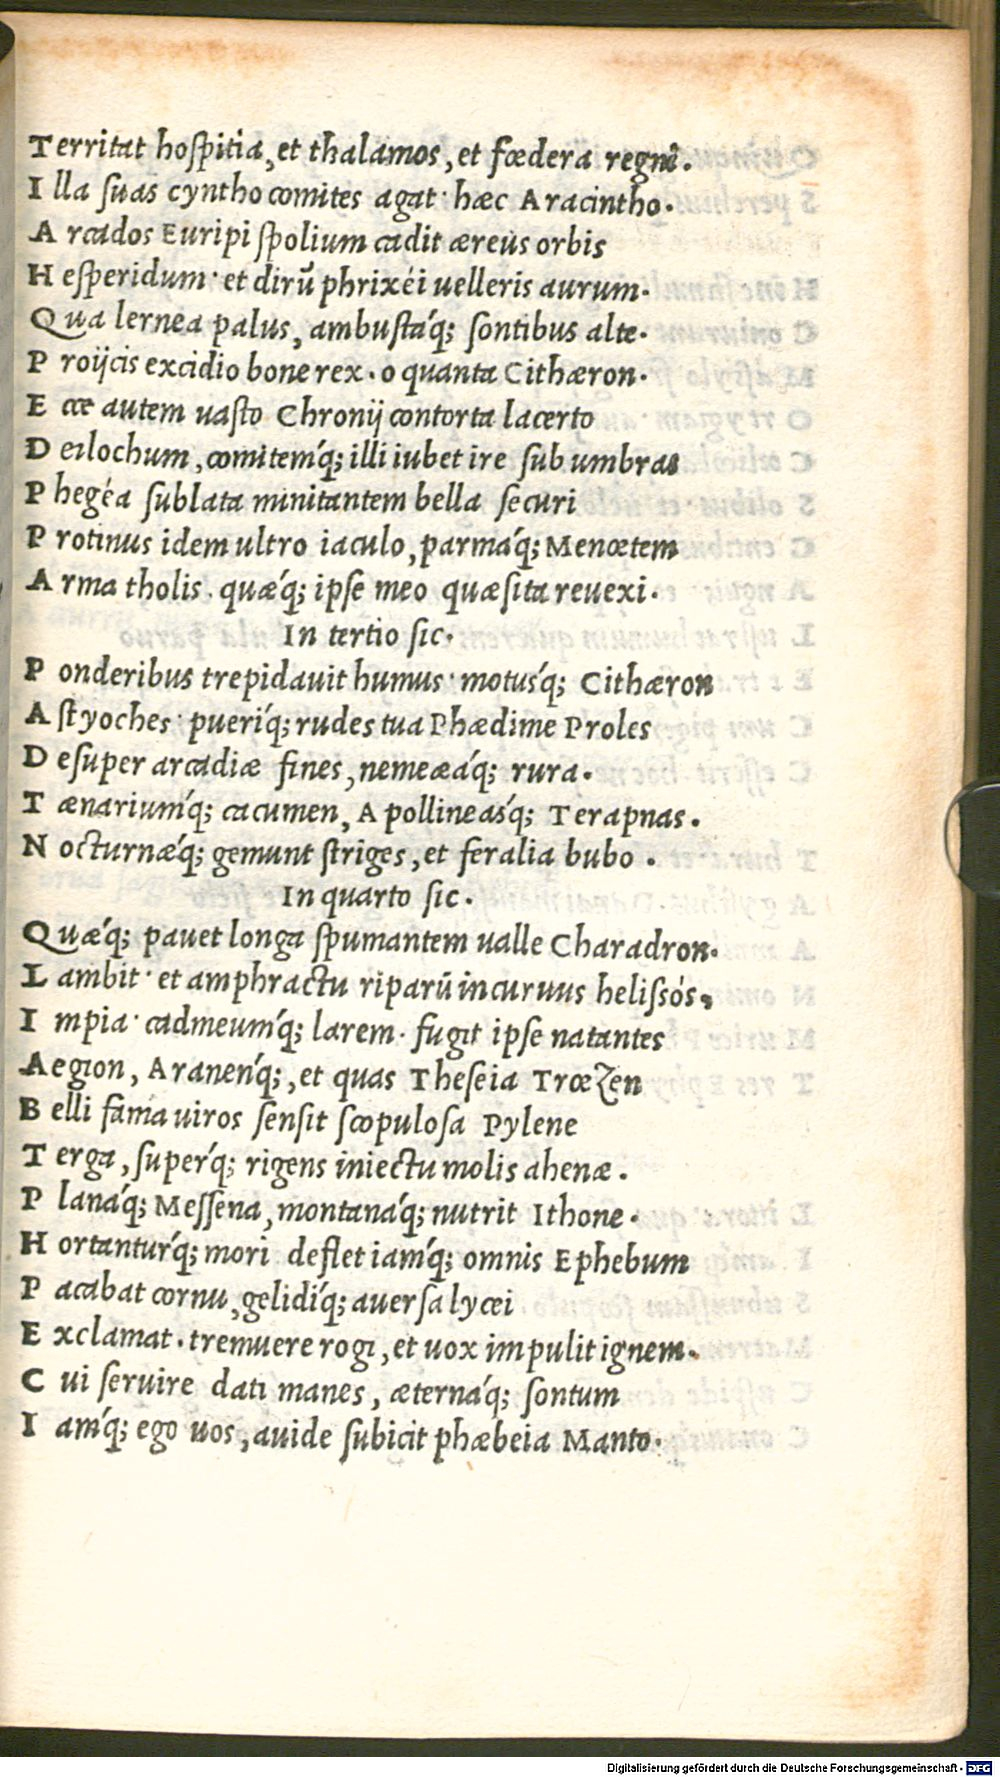 Territat hoſpitia, et thalamos, et fœdera regni.
I lla ſuas cyntho comites agat· hæc Aracintho.
A rcados Euripi ſpolium cadit æreus orbis
H eſperidum· et dirũ phrixéi uelleris aurum.
Q ua lernea palus, ambuſtáq; ſontibus alte.
P roijcis excidio bone rex. o quanta Cithæron.
E cce autem uaſto Chronij contorta lacerto
D eilochum, comitemq́; illi iubet ire ſub umbras
P hegéa ſublata minitantem bella ſecuri
P rotinus idem ultro iaculo, parmáq; Menœtem
A rma tholis. quæq́; ipſe meo quæſita reuexi.
In tertio ſic.
P onderibus trepidauit humus· motusq́; Cithæron
A ſtyoches· pueriq́; rudes tua Phædime Proles
D eſuper arcadiæ fines, nemeæáq; rura.
T ænariumq́; cacumen, Apollineasq́; Terapnas.
N octurnæq́; gemunt ſtriges, et feralia bubo.
In quarto ſic.
Q uæq́; pauet longa ſpumantem ualle Charadron.
L ambit· et amphractu riparũ incuruus heliſsós,
I mpia· cadmeumq́; larem. fugit ipſe natantes
Aegion, Aranenq́;, et quas Theſeia Trœzen
B elli fama uiros ſenſit ſcopuloſa Pylene
T erga, ſuperq́; rigens iniectu molis ahenæ.
P lanáq; Meſſena, montanáq; nutrit Ithone.
H ortanturq́; mori deflet iamq́; omnis Ephebum
P acabat cornu, gelidiq́; auerſa lycei
E xclamat. tremuere rogi, et uox impulit ignem.
C ui ſeruire dati manes, æternáq; ſontum
I amq́; ego uos, auide ſubicit phæbeia Manto.
Digitalisierung gefördert durch die Deutsche Forschungsgemeinschaft - DFG